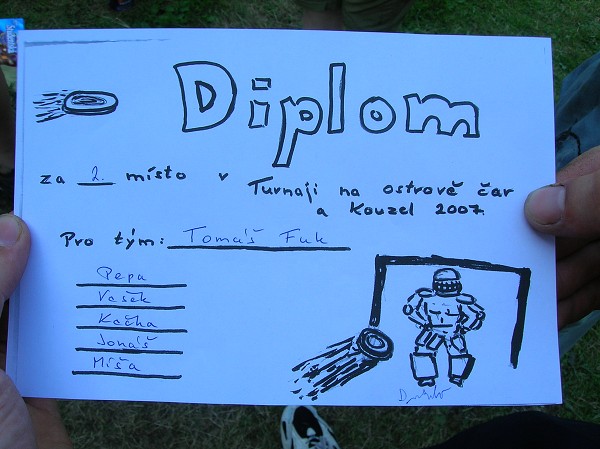 Diplom
za 2. místo v Turnaji na ostrově čar
a Kouzel 2007.
Pro tým: Tomáš Fuk
Pepa
Vašek
Kačka
Jonáš
Míša